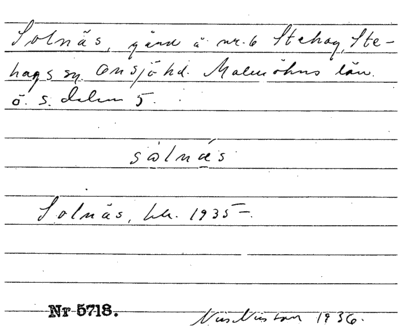 Solnäs, gård å nr. 6 Stehag, Ste-
hags sn. Onsjö hd. Malmöhus län.
ö. s. delen 5.
sólnäs
Solnäs, hk. 1935–.
Nr 5718.
Nils Nilsson 1936.